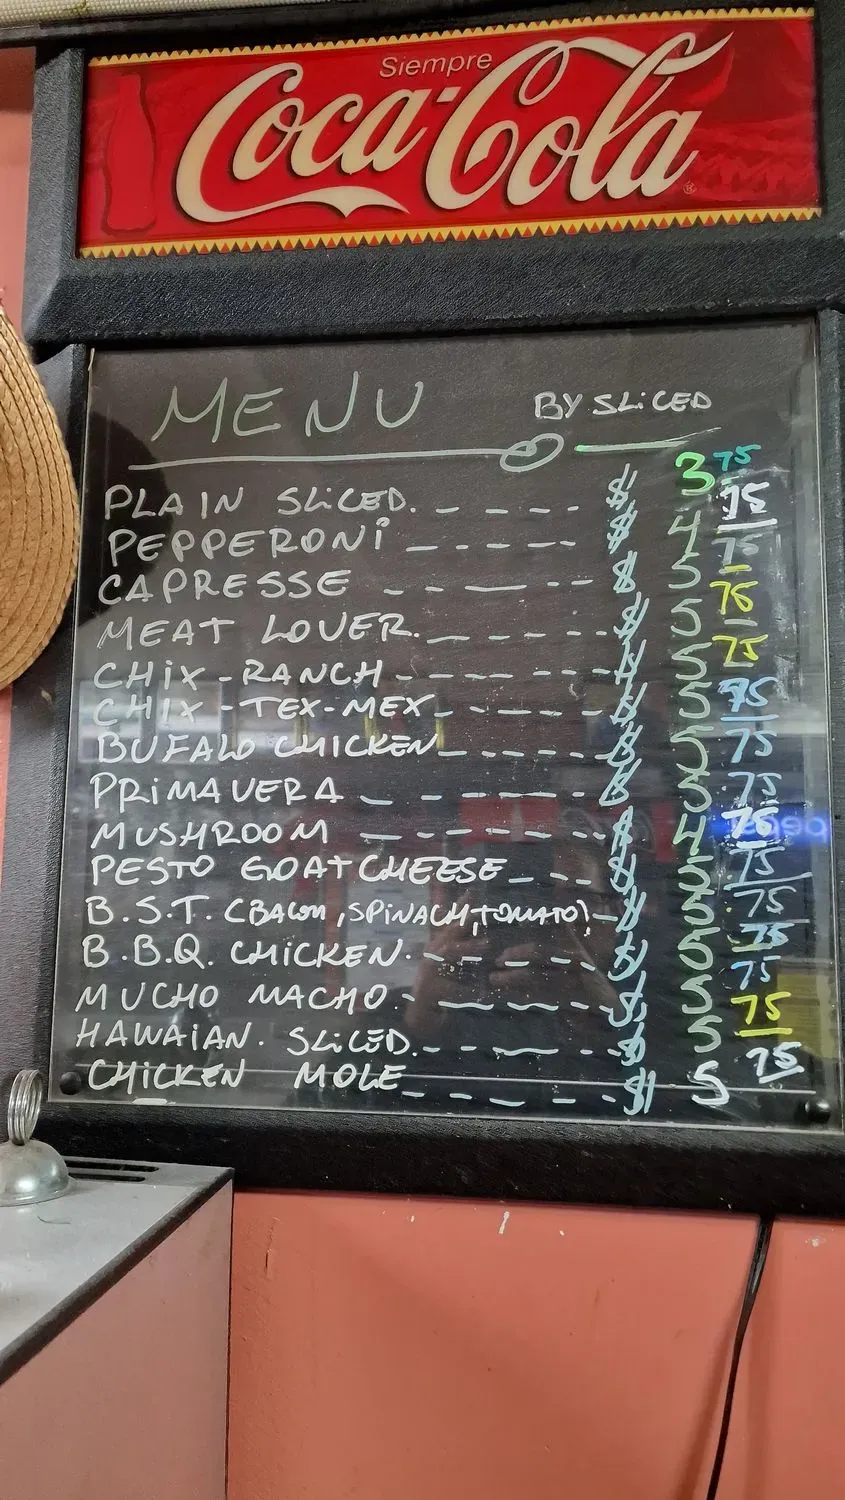 Siempre
Coca-Cola
MENU BY SLICED
PLAIN SLICED. _ _ - - - - $ 3 75
PEPPERONI _ _ - - - - $ 4 75
CAPRESSE - - — - - $ 5 75
MEAT LOVER. _ _ - - - - $ 5 75
CHIX-RANCH - - - - - - $ 5 75
CHIX-TEX-MEX - - - - - $ 5 75
BUFALO CHICKEN - - - - - $ 5 75
PRIMAVERA _ - - - - - $ 5 75
MUSHROOM — - - - - - $ 4 75
PESTO GOAT CHEESE _ _ - - $ 5 75
B.S.T. (BACON, SPINACH, TOMATO) - $ 5 75
B.B.Q. CHICKEN. - - - - - $ 5 75
MUCHO MACHO. - — - - - $ 5 75
HAWAIAN. SLICED. - - — - - $ 5 75
CHICKEN MOLE _ _ - - - - $ 5 75